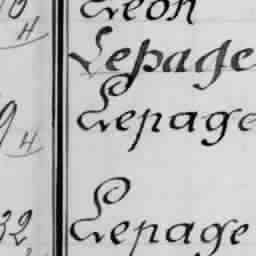 Leon
H
Lepage
Lepage
H
32
Lepage